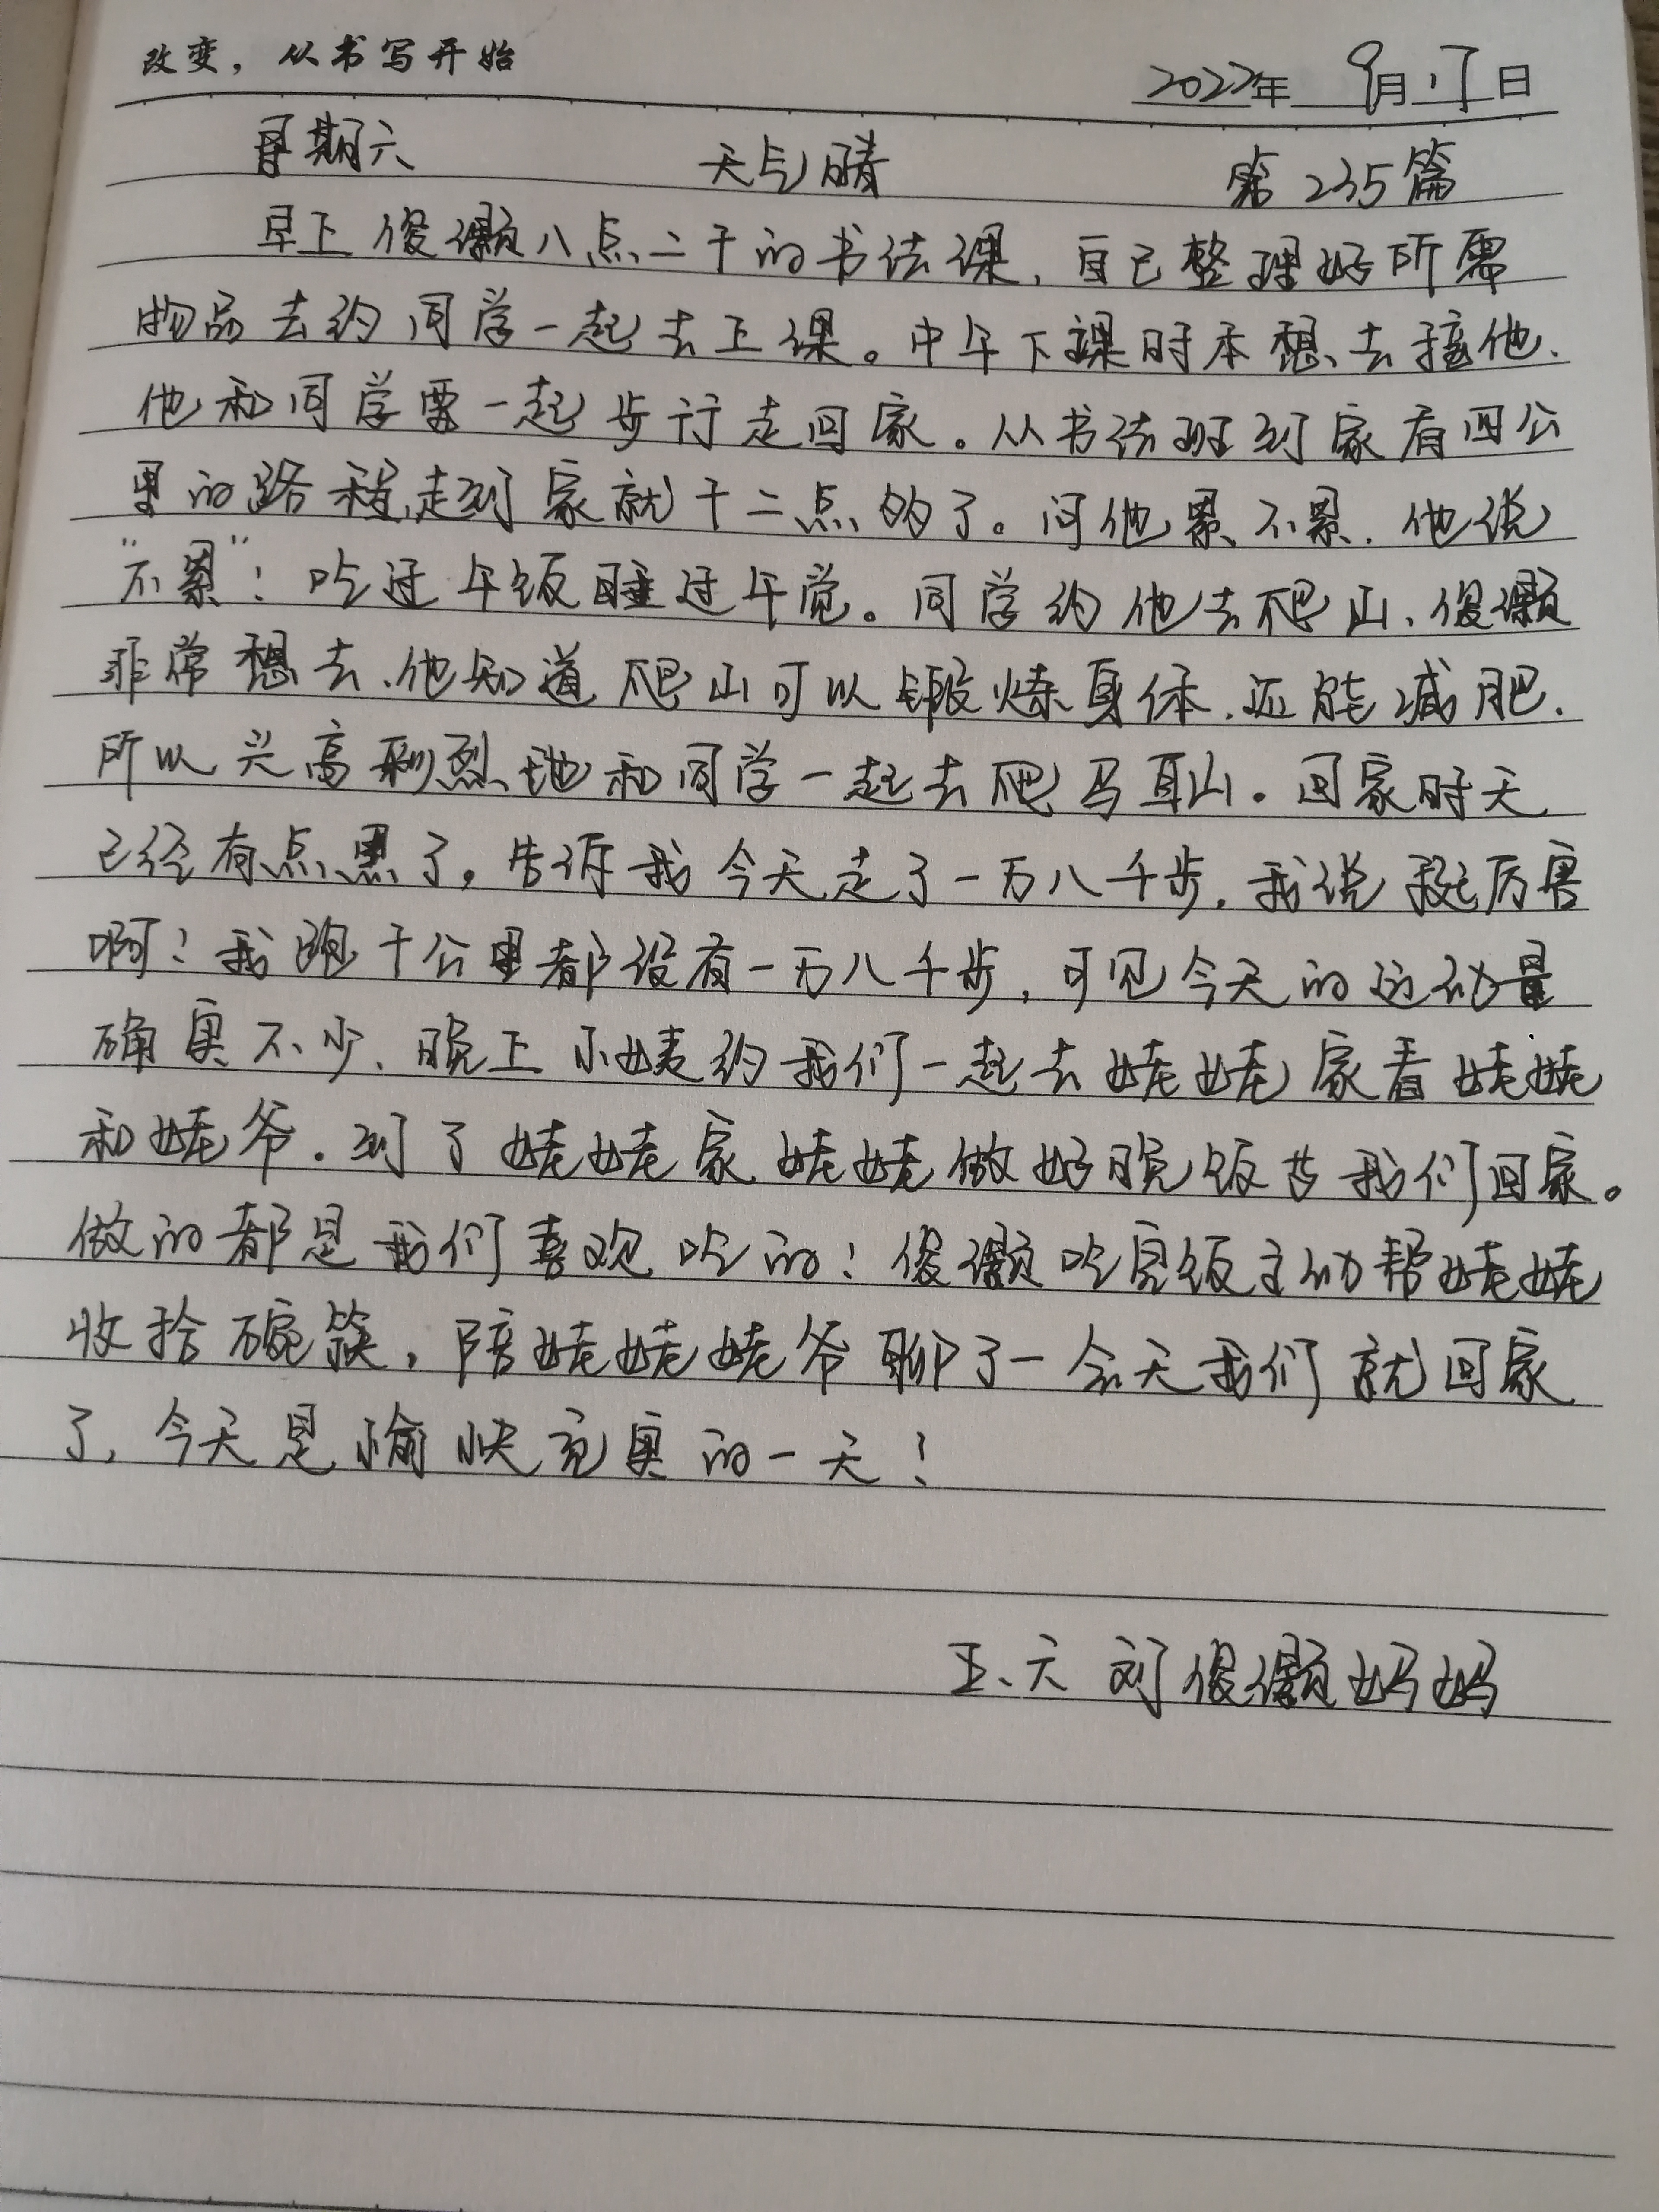 改变，从书写开始
2022年 9月17日
星期六 天气晴 第235篇
早上俊灏八点二十的书法课，自己整理好所需
物品去约同学一起去上课。中午下课时本想去接他，
他和同学要一起步行走回家。从书法班到家有四公
里的路程，走到家就十二点的了。问他累不累，他说
“不累”！吃过午饭睡过午觉。同学约他去爬山，俊灏
非常想去，他知道爬山可以锻炼身体，还能减肥，
所以兴高采烈地和同学一起去爬马耳山。回家时天
已经有点黑了。告诉我今天走了一万八千步，我说挺厉害
啊！我跑十公里都没有一万八千步，可见今天的运动量
确实不少，晚上小姨约我们一起去姥姥家看姥姥
和姥爷。到了姥姥家，姥姥做好晚饭等我们回家。
做的都是我们喜欢吃的！俊灏吃完饭主动帮姥姥
收拾碗筷，陪姥姥姥爷聊了一会天我们就回家
了，今天是愉快充实的一天！
五、六 刘俊灏妈妈